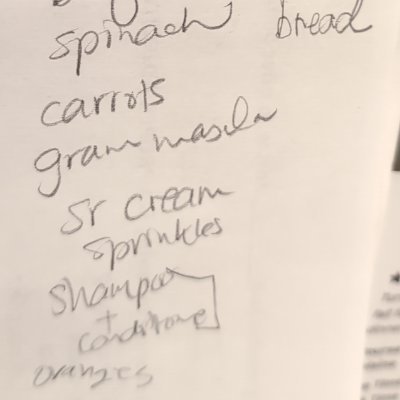 spinach bread
carrots
gram masala
sr cream
sprinkles
shampoo
+
conditione
oranges